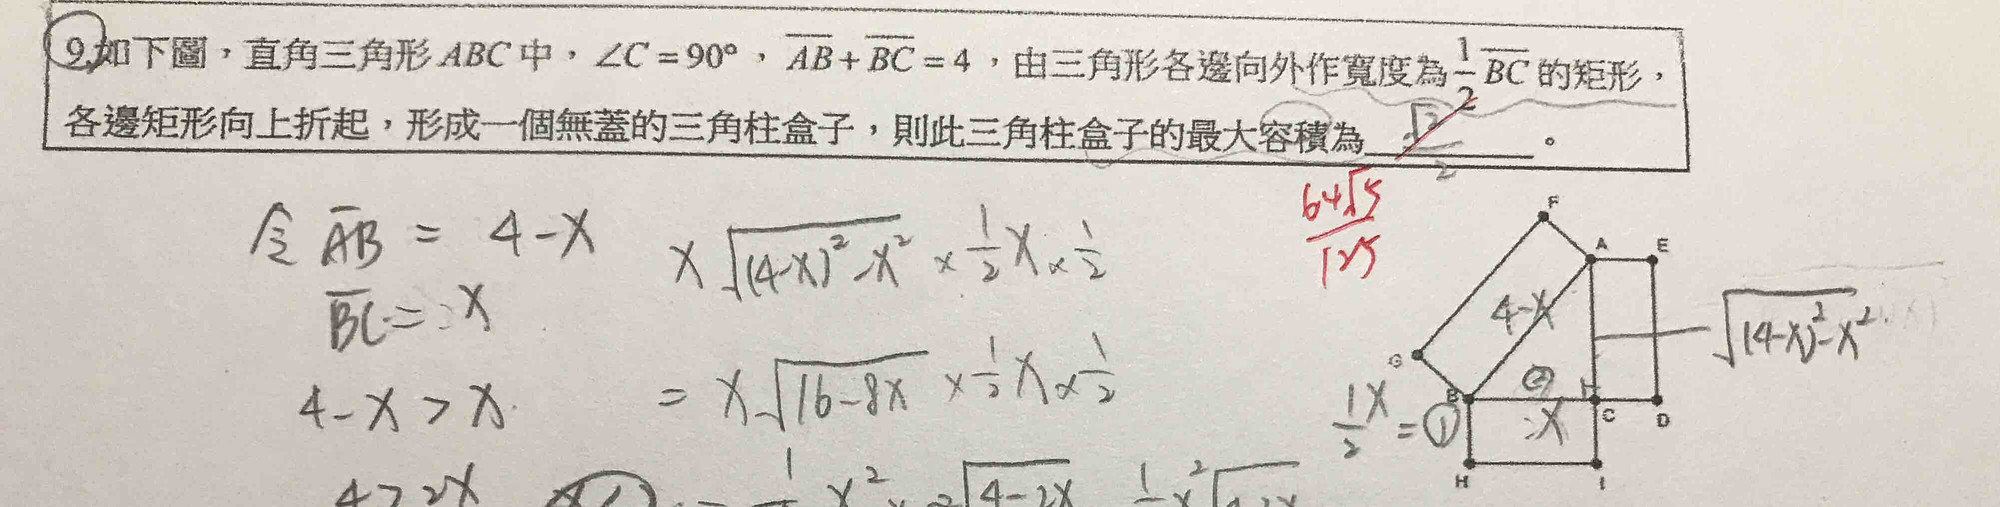 9.如下圖，直角三角形 ABC 中，∠C = 90°，AB + BC = 4，由三角形各邊向外作寬度為 1/2 BC 的矩形，
各邊矩形向上折起，形成一個無蓋的三角柱盒子，則此三角柱盒子的最大容積為 √2/2 。
64√5/125
令 AB = 4-x
BC = x
4-x > x
4 > 2x
x√((4-x)²-x²) × 1/2 x × 1/2
= x√(16-8x) × 1/2 x × 1/2
F
A
E
4-x
√((4-x)²-x²)
G
B
②
C
D
1/2 x = ①
x
H
I